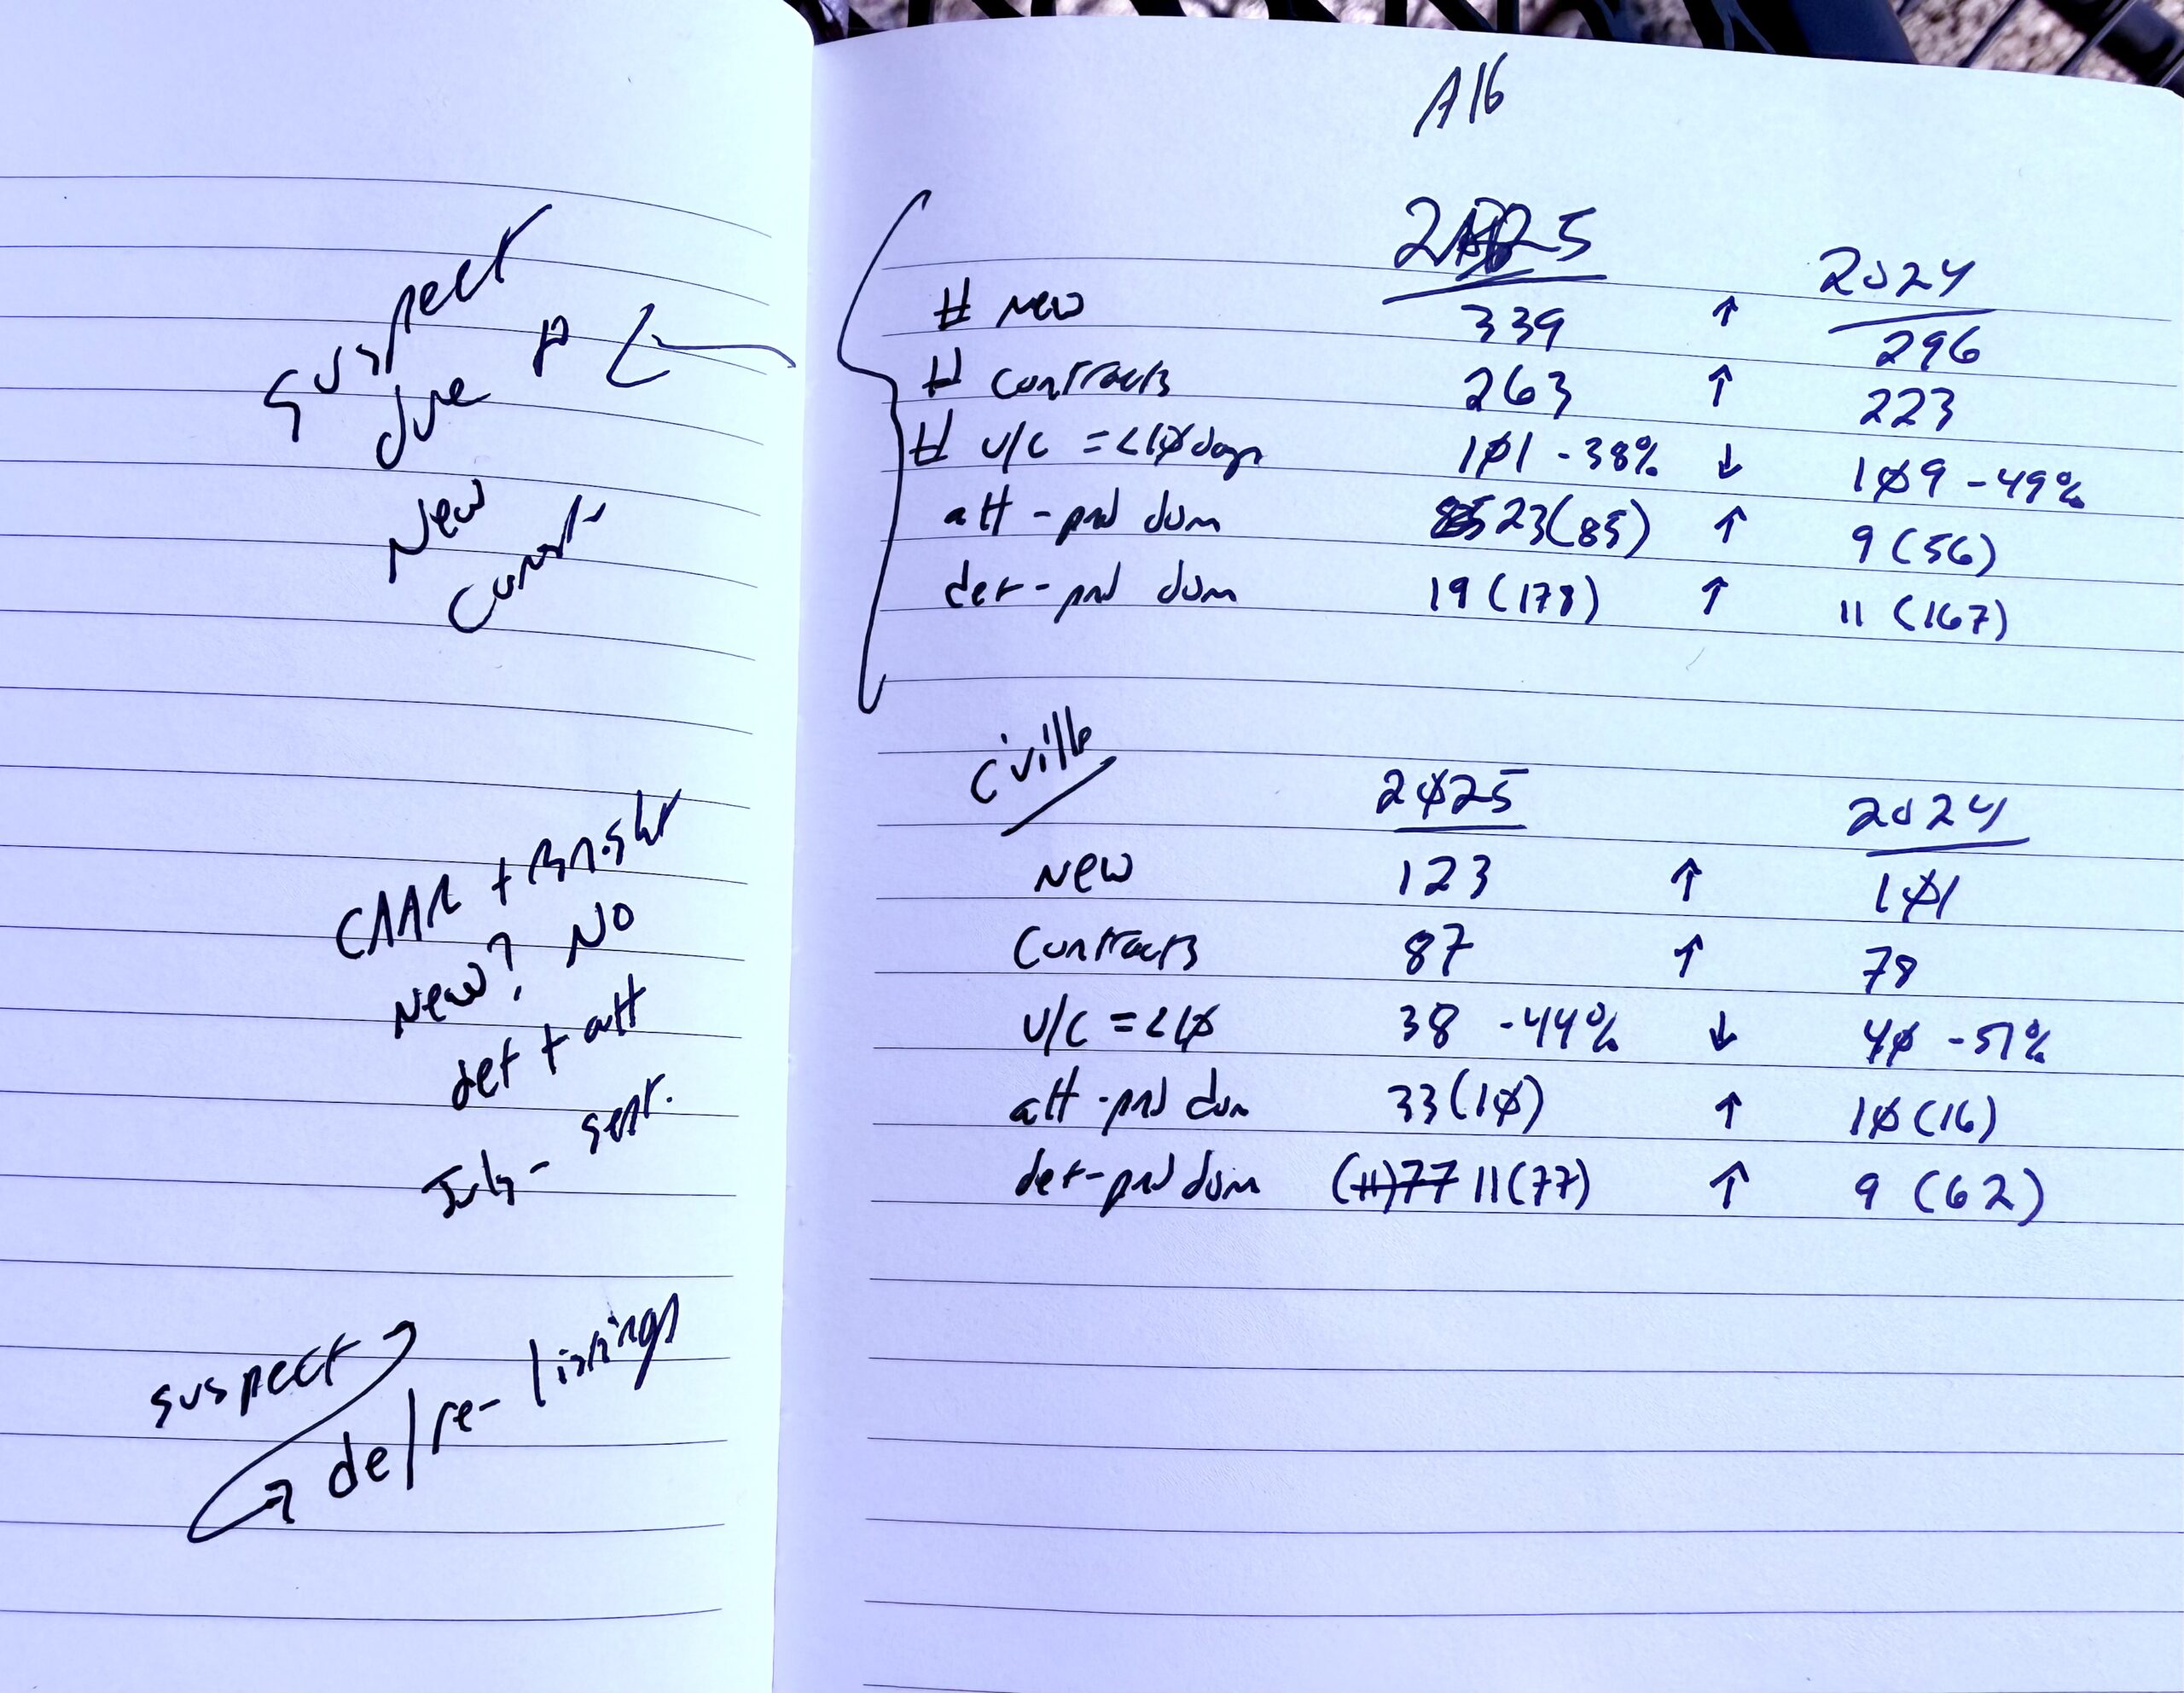 suspect
due to
New
Const.
CAAR + Bright
New? No
det + att
July - sept.
suspect
de/re-listings
Alb
2025 2024
# New 339 ↑ 296
# contracts 263 ↑ 223
# U/C =<10 days 101 - 38% ↓ 109 - 49%
att - pnd dom 23(85) ↑ 9 (56)
det - pnd dom 19 (178) ↑ 11 (167)
c'ville
2025 2024
New 123 ↑ 101
Contracts 87 ↑ 78
U/C =<10 38 - 44% ↓ 40 - 51%
att - pnd dom 33(10) ↑ 10(16)
det - pnd dom (11)77 11(77) ↑ 9 (62)